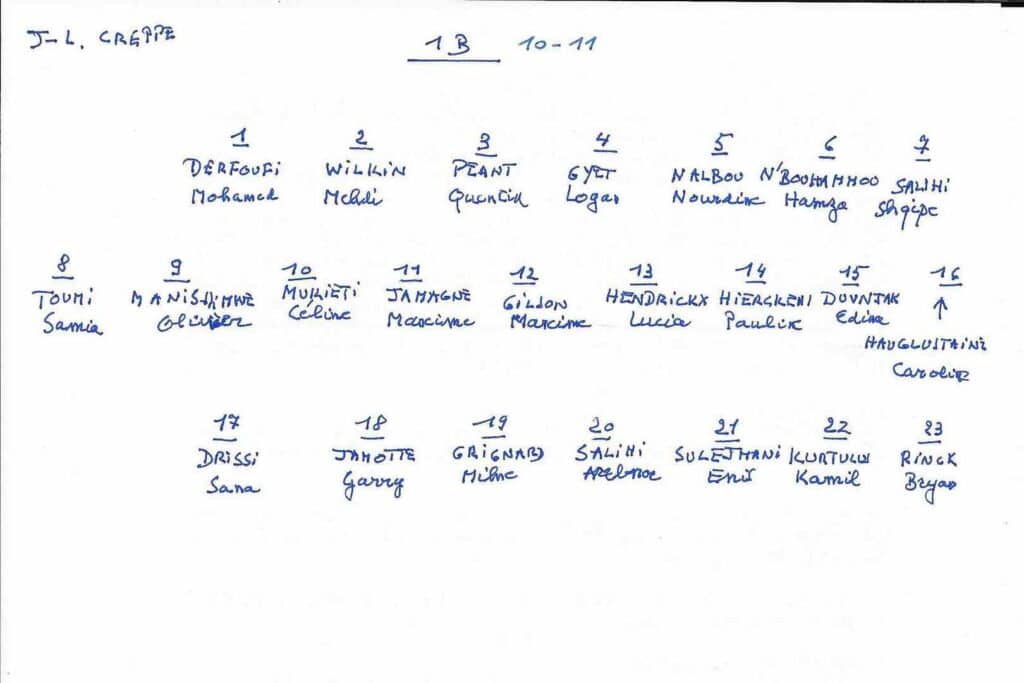 J-L. CREPPE
1B 10-11
1 2 3 4 5 6 7
DERFOUFI WILKIN PEANT GYET NALBOU N'BOUHAMMOO SALIHI
Mohamed Mehdi Quentin Logan Nourdine Hamza Shqipe
8 9 10 11 12 13 14 15 16
TOUMI MANISHIMWE MUKIETI JAMAGNE GILLON HENDRICKX DUVNJAK ↑
Samia Olivier Céline Maxime Maxime Lucia Pauline Edina
HAUGLUSTAINE
Caroline
17 18 19 20 21 22 23
DRISSI JAMOTTE GRIGNARD SALIHI SULEJMANI KURTULUS RINCK
Sana Garry Milne Enis Kamil Bryan